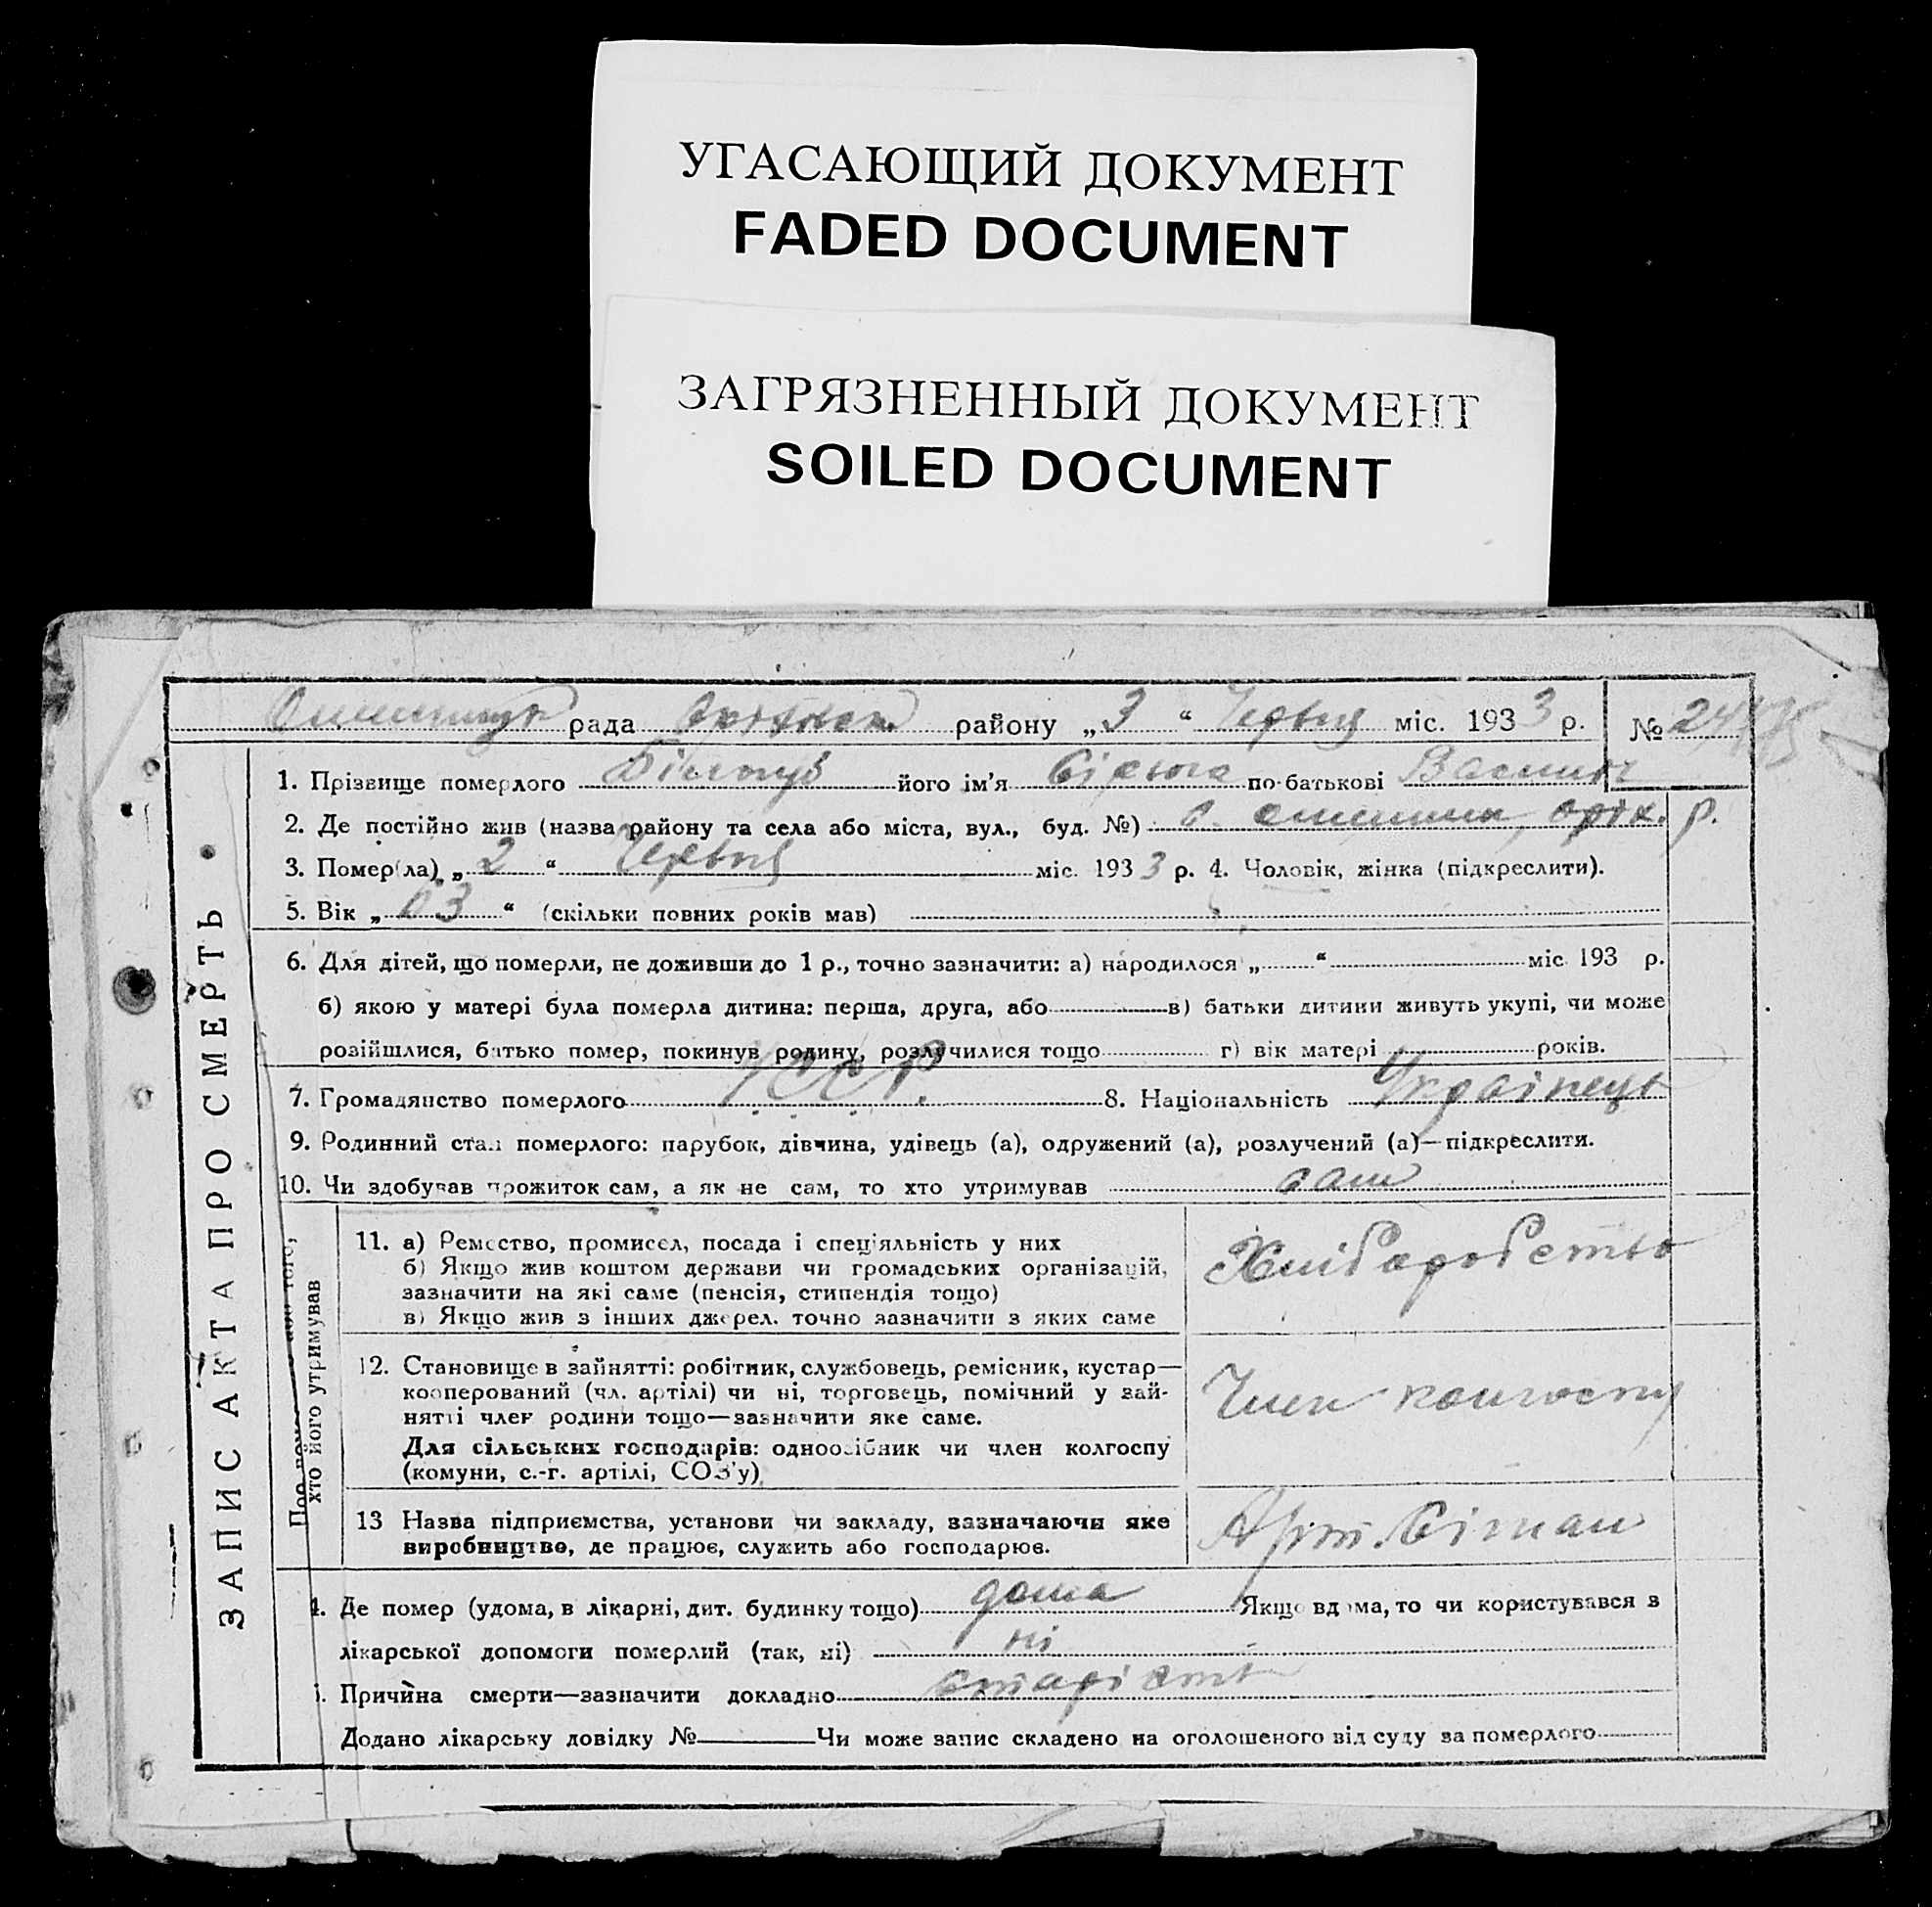 УГАСАЮЩИЙ ДОКУМЕНТ
FADED DOCUMENT
ЗАГРЯЗНЕННЫЙ ДОКУМЕНТ
SOILED DOCUMENT
ЗАПИС АКТА ПРО СМЕРТЬ
рада району „3“ Червця міс. 1933 р. №
1. Прізвище померлого його ім’я по-батькові
2. Де постійно жив (назва району та села або міста, вул., буд. №) с. оріх. р.
3. Помер(ла) „2“ Червця міс. 1933 р. 4. Чоловік, жінка (підкреслити).
5. Вік „ “ (скільки повних років мав)
6. Для дітей, що померли, не доживши до 1 р., точно зазначити: а) народилося „ “ міс. 193 р.
б) якою у матері була померла дитина: перша, друга, або в) батьки дитини живуть укупі, чи може
розійшлися, батько помер, покинув родину, розлучилися тощо г) вік матері років.
7. Громадянство померлого УССР. 8. Національність Українець
9. Родинний стан померлого: парубок, дівчина, удівець (а), одружений (а), розлучений (а)—підкреслити.
10. Чи здобував прожиток сам, а як не сам, то хто утримував сам
хто його утримував
11. а) Ремество, промисел, посада і спеціяльність у них
б) Якщо жив коштом держави чи громадських організацій,
зазначити на які саме (пенсія, стипендія тощо)
в) Якщо жив з інших джерел. точно зазначити з яких саме
Хліборобство
12. Становище в зайнятті: робітник, службовець, ремісник, кустар—
кооперований (чл. артілі) чи ні, торговець, помічний у зай-
нятті член родини тощо—зазначити яке саме.
Для сільських господарів: одноосібник чи член колгоспу
(комуни, с.-г. артілі, СОЗ’у)
Член колгоспу
13 Назва підприємства, установи чи закладу, зазначаючи яке
виробництво, де працює, служить або господарює.
4. Де помер (удома, в лікарні, дит. будинку тощо) дома Якщо вдома, то чи користувався з
лікарської допомоги померлий (так, ні) ні
Причина смерти—зазначити докладно старість
Додано лікарську довідку № Чи може запис складено на оголошеного від суду за померлого